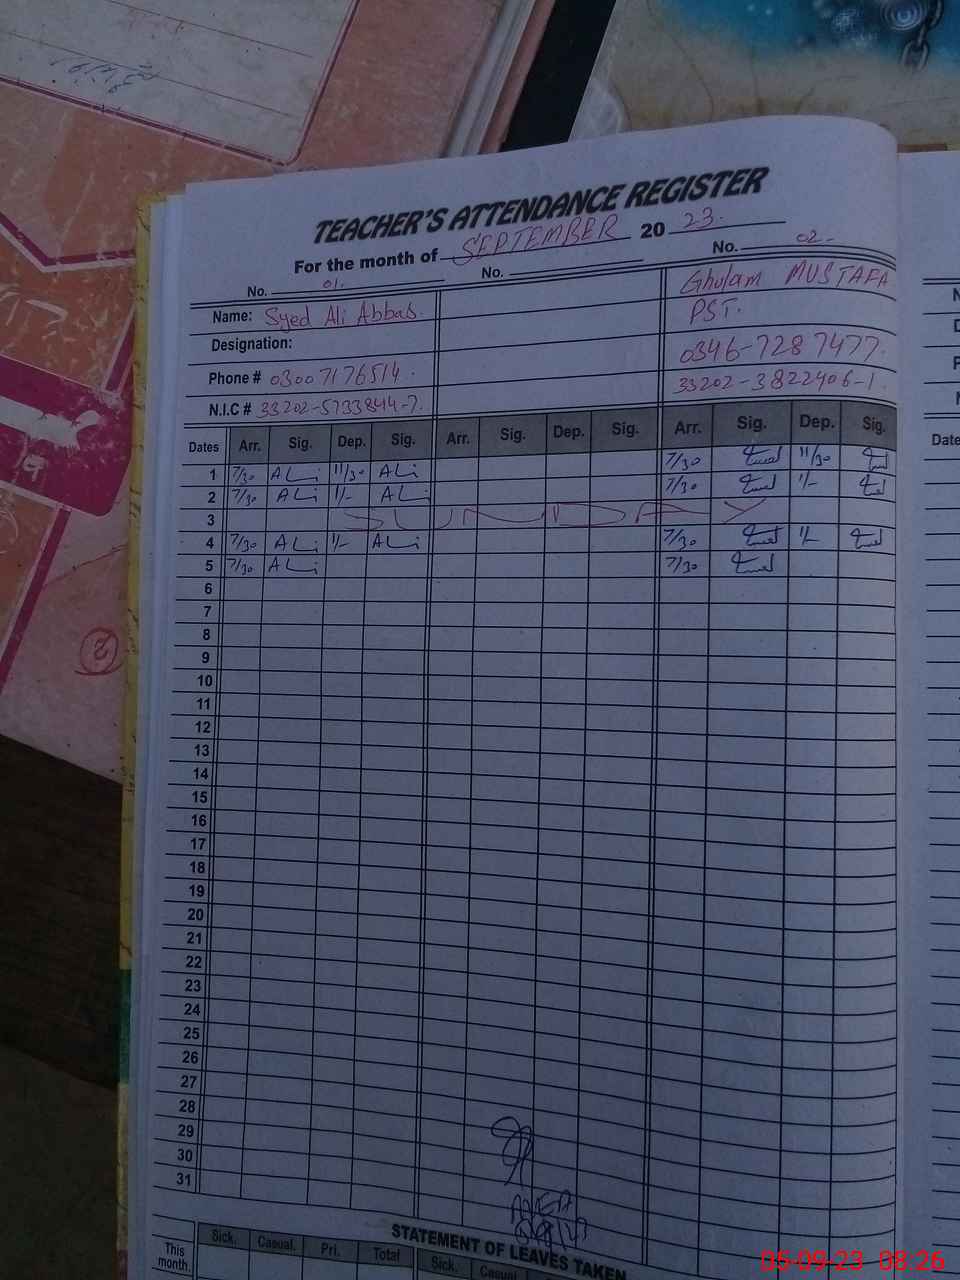 TEACHER'S ATTENDANCE REGISTER
For the month of SEPTEMBER 2023.
No. 01. No. No. 02-
Name: Syed Ali Abbas. Ghulam MUSTAFA
Designation: PST.
Phone # 03007176514. 0346-7287477.
N.I.C # 33202-5733844-7. 33202-3822406-1
Dates Arr. Sig. Dep. Sig. Arr. Sig. Dep. Sig. Arr. Sig. Dep. Sig.
1 7/30 ALi 11/30 ALi 7/30 11/30
2 7/30 ALi 1/- ALi 7/30 1/-
3 SUNDAY
4 7/30 ALi 1/- ALi 7/30 1/-
5 7/30 ALi 7/30
6
7
8
9
10
11
12
13
14
15
16
17
18
19
20
21
22
23
24
25
26
27
28
29
30
31
STATEMENT OF LEAVES TAKEN
This month. Sick. Casual. Pri. Total Sick. Casual
Date
2
05-09-23 08:26